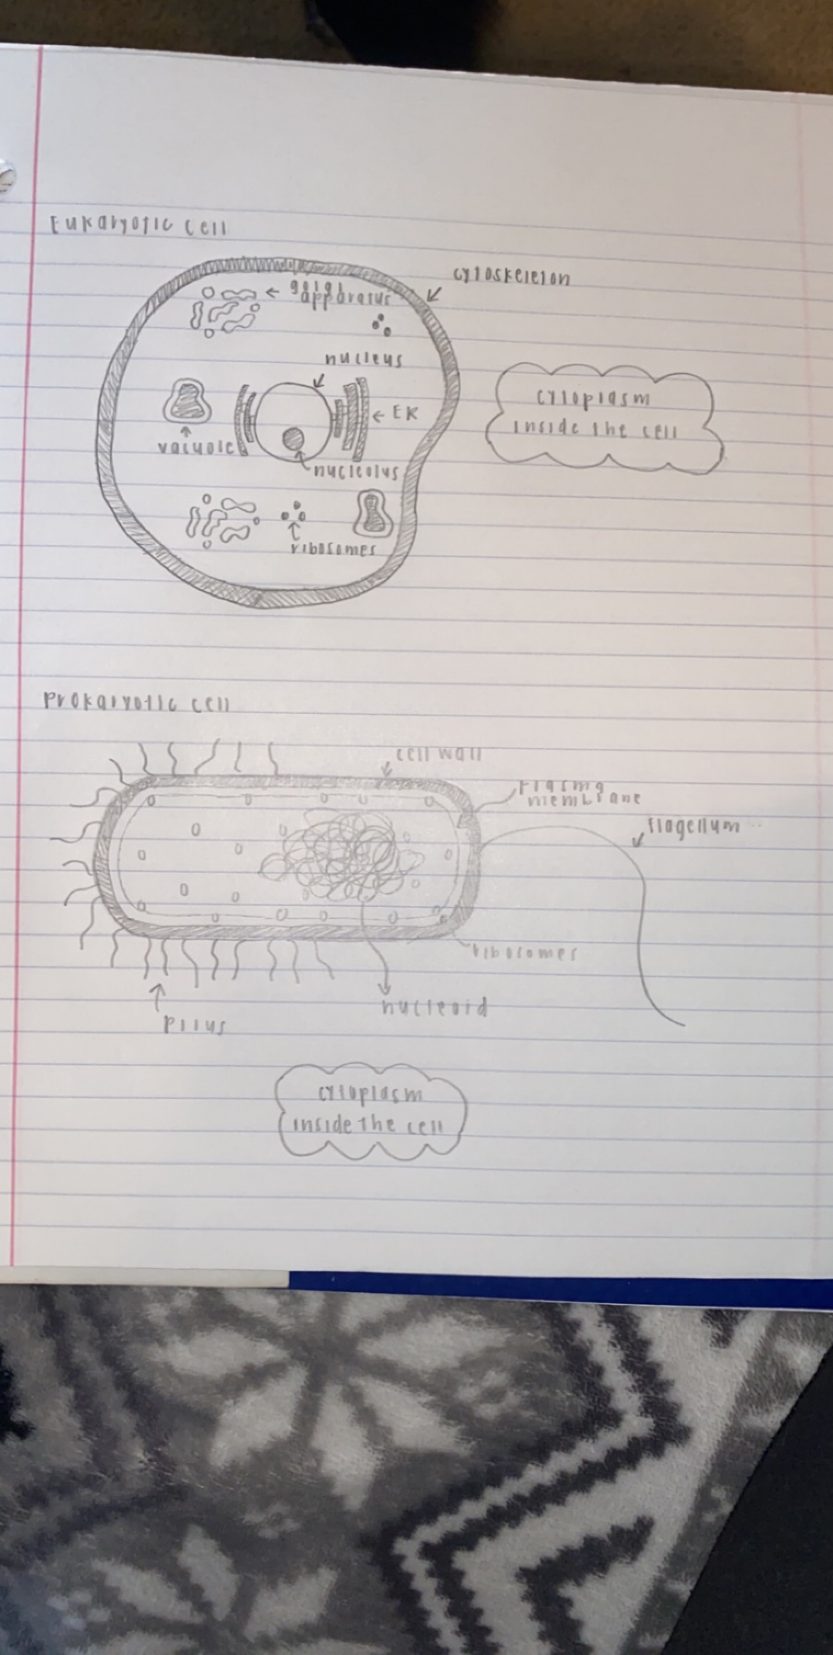 Eukaryotic cell
cytoskeleton
golgi
apparatus
nucleus
cytoplasm
inside the cell
ER
vacuole
nucleolus
ribosomes
Prokaryotic cell
cell wall
plasma
membrane
flagellum
ribosomes
nucleoid
Pilus
cytoplasm
inside the cell